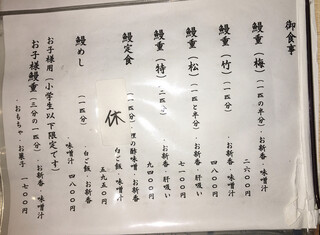 御食事
鰻重（梅）
（一匹の半分）・お新香・味噌汁
二六〇〇円
鰻重（竹）
（一匹分）・お新香・味噌汁
四八〇〇円
鰻重（松）
（一匹と半分）・お新香・肝吸い
七一〇〇円
鰻重（特）
（二匹分）・お新香・肝吸い
九四〇〇円
鰻定食
（一匹分）・
白ご飯・味噌汁
五九五〇円
休
鰻めし
（一匹分）
・白ご飯・お新香
・味噌汁
四八〇〇円
お子様用（小学生以下限定です）
お子様鰻重（三分の一匹分）・お新香・味噌汁
・おもちゃ・お菓子
一七〇〇円